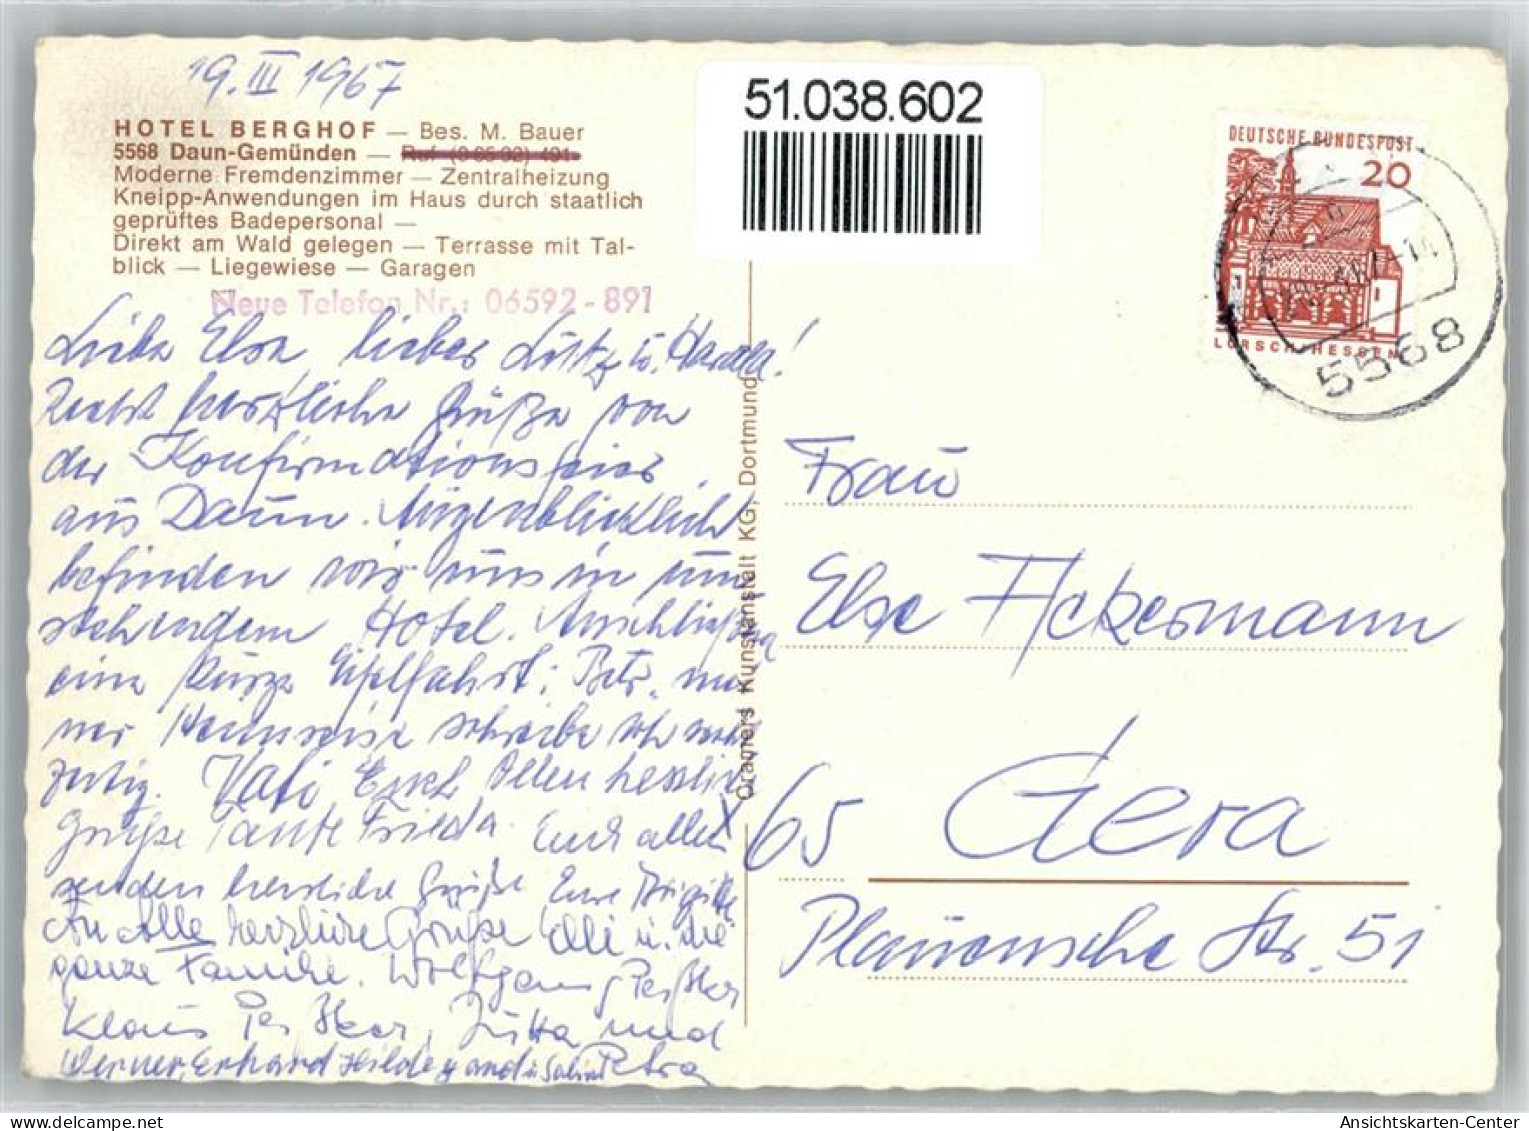 19. III 1967
HOTEL BERGHOF — Bes. M. Bauer
5568 Daun-Gemünden — Ruf (0 65 92) 491
Moderne Fremdenzimmer — Zentralheizung
Kneipp-Anwendungen im Haus durch staatlich
geprüftes Badepersonal —
Direkt am Wald gelegen — Terrasse mit Tal-
blick — Liegewiese — Garagen
Neue Telefon Nr.: 06592-891
Liebe Elsa lieber Lutz u. Harald!
Recht herzliche Grüße von
der Konfirmationsfeier
aus Daun. Augenblicklich
befinden wir uns in um
stehendem Hotel. Anschließend
eine kurze Eifelfahrt. Betr. mei
ner Heimreise schreibe ich recht
zeitig. Vati Euch Allen herzlich
Grüße Tante Frieda. Euch allen
senden herzliche Grüße Eure Brigitte
An Alle herzliche Grüße Elli u. die
ganze Familie. Wolfgang
Klaus Jutta und
Werner, Erhard Hilde Petra
Cramers Kunstanstalt KG, Dortmund
51.038.602
DEUTSCHE BUNDESPOST
20
LORSCH HESSEN
5568
Frau
Else Ackermann
65 Gera
Plauensche Str. 51
Ansichtskarten-Center